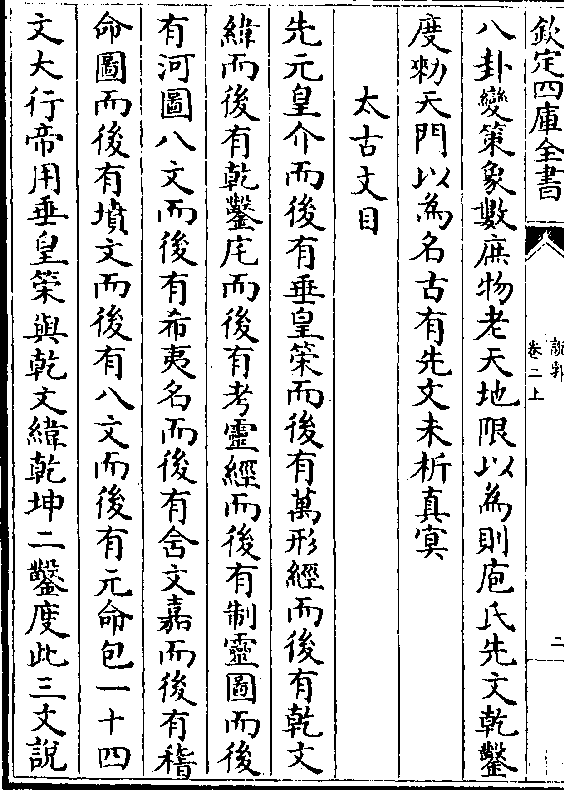 欽定四庫全書
說郛
卷二上
二
八卦變策象數庶物老天地限以為則庖氏先文乾鑿
度勑天門以為名古有先文未析真㝠
太古文目
先元皇介而後有垂皇策而後有萬形經而後有乾文
緯而後有乾鑿庑而後有考靈經而後有制靈圖而後
有河圖八文而後有希夷名而後有含文嘉而後有稽
命圖而後有墳文而後有八文而後有元命包一十四
文大行帝用垂皇策與乾文緯乾坤二鑿度此三文說